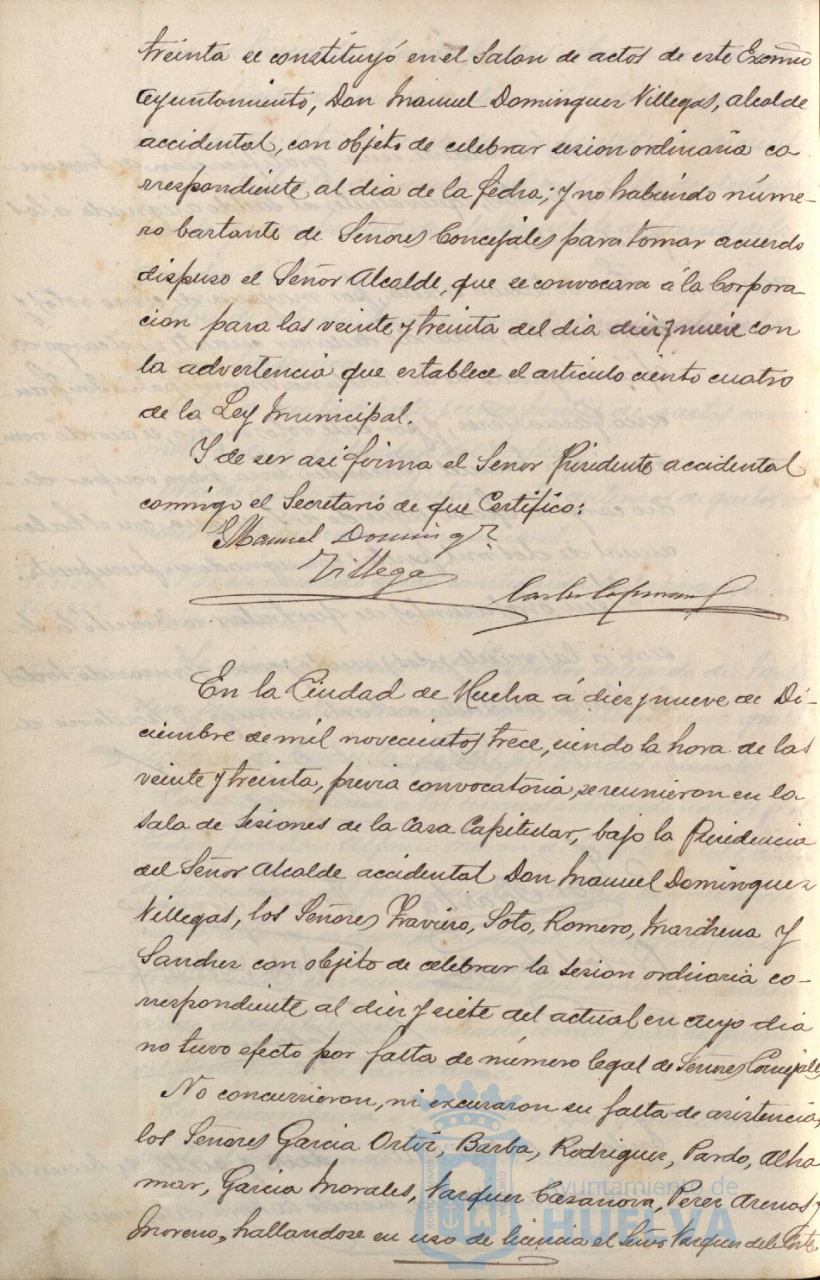 treinta se constituyó en el Salon de actos de este Excmo
Ayuntamiento, Don Manuel Dominguez Villegas, Alcalde
accidental, con objeto de celebrar sesion ordinaria co-
rrespondiente al dia de la fecha; y no habiendo núme-
ro bastante de Señores Concejales para tomar acuerdo
dispuso el Señor Alcalde, que se convocara á la Corpora
cion para las veinte y treinta del dia diez y nueve con
la advertencia que establece el articulo ciento cuatro
de la Ley Municipal.
Y de ser asi firma el Señor Presidente accidental
conmigo el Secretario de que Certifico:
Manuel Doming.z
Villega
En la Ciudad de Huelva á diez y nueve de Di-
ciembre de mil novecientos trece, siendo la hora de las
veinte y treinta, previa convocatoria, se reunieron en la
Sala de Sesiones de la Casa Capitular, bajo la Presidencia
del Señor Alcalde accidental Don Manuel Dominguez
Villegas, los Señores Traviero, Soto, Romero, Marchena y
Sanchez con objeto de celebrar la sesion ordinaria co-
rrespondiente al diez y siete del actual en cuyo dia
no tuvo efecto por falta de número legal de Señores Concejales
No concurrieron, ni excusaron su falta de asistencia,
los Señores Garcia Ortiz, Barba, Rodriguez, Pardo, Alha
mar, Garcia Morales, Vazquez Casanova, Perez Arenas y
Moreno, hallandose en uso de licencia el Señor Vazquez de la Corte
Ayuntamiento de
HUELVA